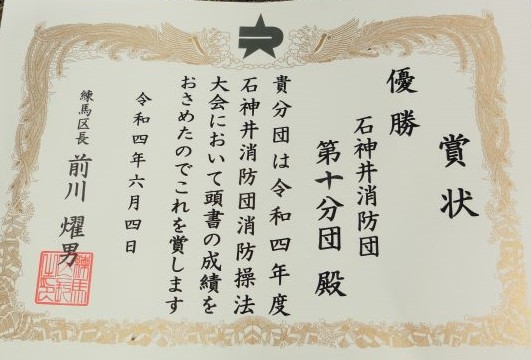 賞状
優勝
石神井消防団
第十分団 殿
貴分団は令和四年度
石神井消防団消防操法
大会において頭書の成績を
おさめたのでこれを賞します
令和四年六月四日
練馬区長 前川燿男